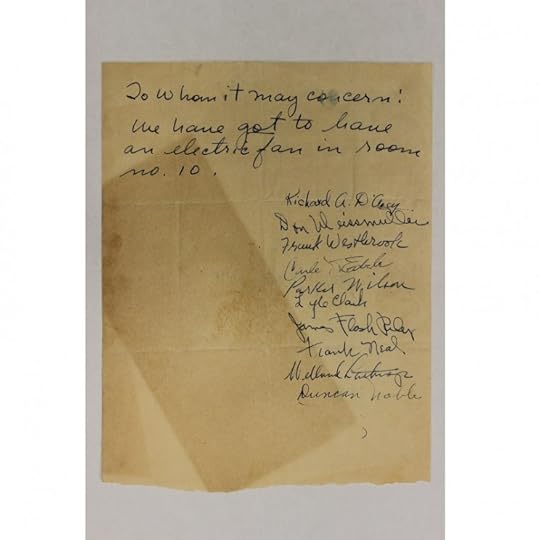 To Whom it may concern!
We have got to have
an electric fan in room
no. 10.
Richard A. D'Arcy
Don Weissmuller
Frank Westbrook
Parker Wilson
Lyle Clark
James Flash Riley
Frank Neal
Duncan Noble